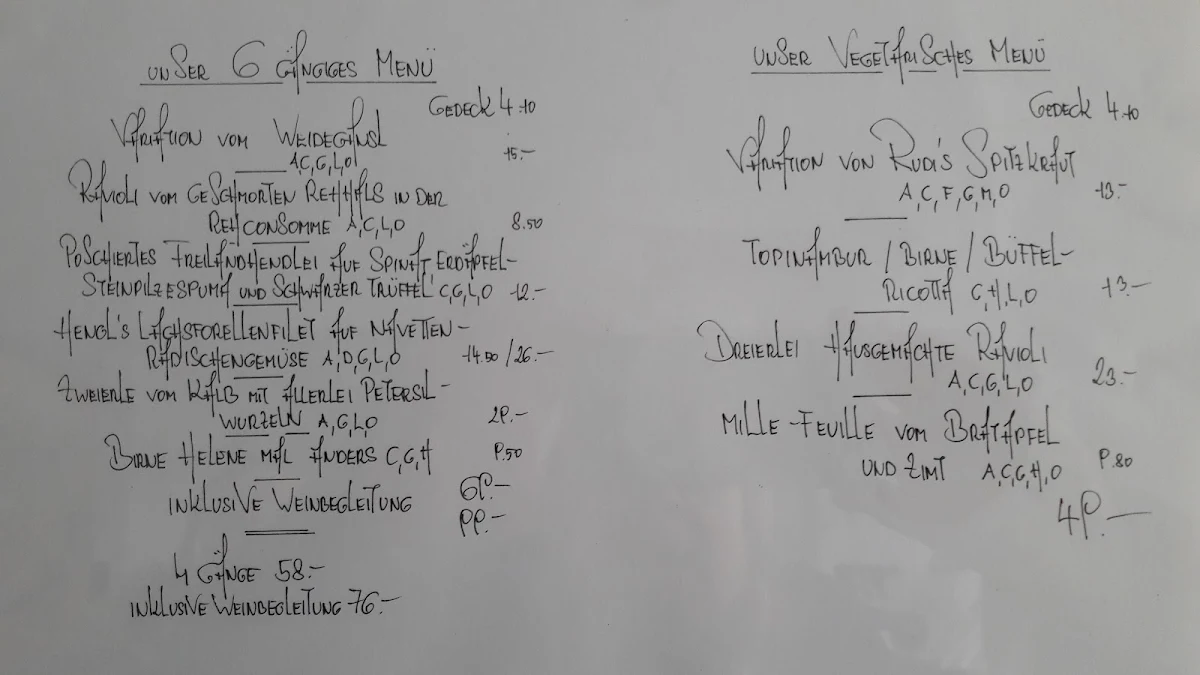 UNSER 6 GÄNGIGES MENÜ
GEDECK 4.10
VARIATION VOM WEIDEGANSL
A,C,G,L,O 15.-
RAVIOLI VOM GESCHMORTEN REHHALS IN DER
REHCONSOMME A,C,L,O 8.50
POSCHIERTES FREILANDHENDLEI AUF SPINAT ERDÄPFEL-
STEINPILZESPUMA UND SCHWARZER TRÜFFEL C,G,L,O 12.-
HENGL'S LACHSFORELLENFILET AUF NAVETTEN-
RADISCHENGEMÜSE A,D,G,L,O 14.50/26.-
ZWEIERLE VOM KALB MIT ALLERLEI PETERSIL-
WURZELN A,G,L,O 29.-
BIRNE HELENE MAL ANDERS C,G,H 9.50
69.-
INKLUSIVE WEINBEGLEITUNG 99.-
4 GÄNGE 58.-
INKLUSIVE WEINBEGLEITUNG 76.-
UNSER VEGETARISCHES MENÜ
GEDECK 4.10
VARIATION VON RUDI'S SPITZKRAUT
A,C,F,G,M,O 13.-
TOPINAMBUR / BIRNE / BÜFFEL-
RICOTTA C,H,L,O 13.-
DREIERLEI HAUSGEMACHTE RAVIOLI
A,C,G,L,O 23.-
MILLE-FEUILLE VOM BRATAPFEL
UND ZIMT A,C,G,H,O 9.80
49.-